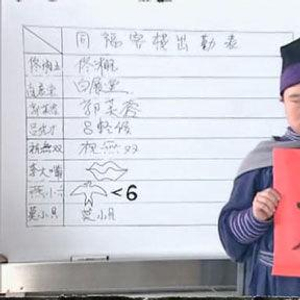 同福客栈出勤表
佟湘玉 佟湘玉
白展堂 白展堂
郭芙蓉 郭芙蓉
吕秀才 吕轻侯
祝無双 祝無双
李大嘴
燕小六 <6
莫小贝 莫小贝